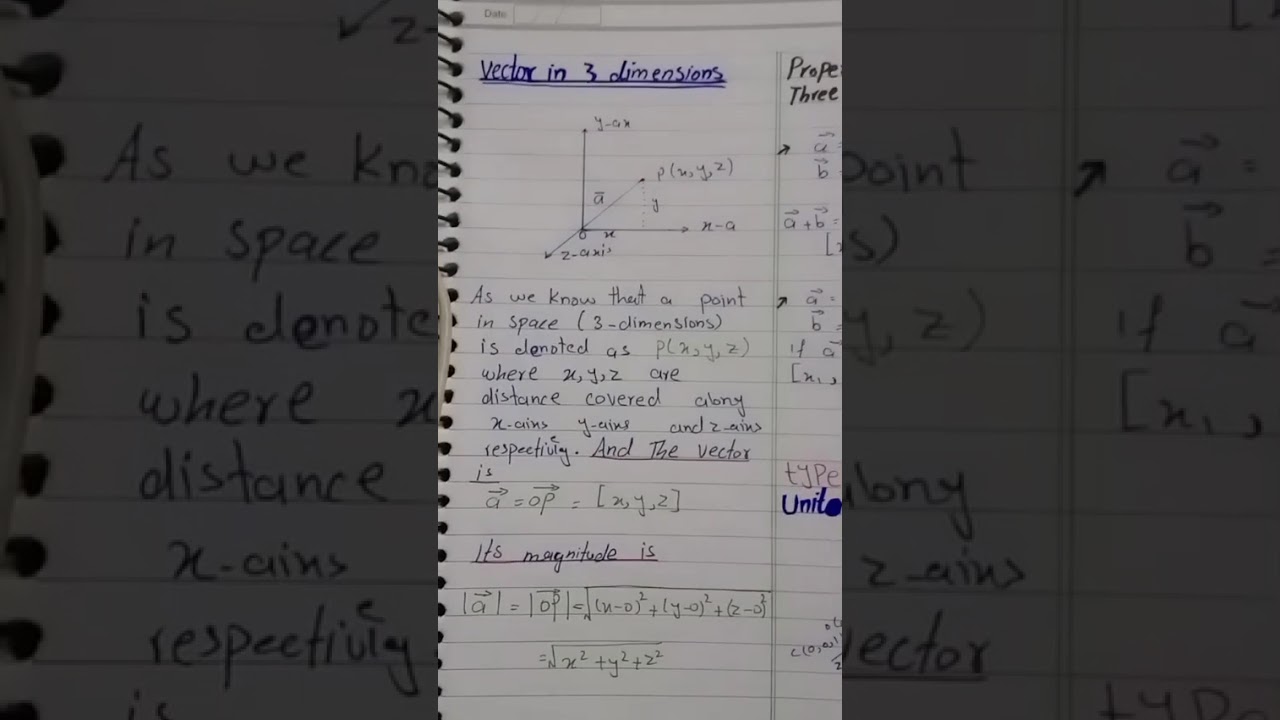 Date
Vector in 3 dimensions
y-ax
P(x,y,z)
a
y
x-a
o x
z-axis
As we know that a point
in space (3-dimensions)
is denoted as P(x,y,z)
where x,y,z are
distance covered along
x-ains y-ains and z-ains
respectivley. And The vector
is
a⃗ = OP⃗ = [x,y,z]
Its magnitude is
|a⃗| = |OP⃗| = √(x-0)²+(y-0)²+(z-0)²
=√x²+y²+z²
Prope
Three
↗ a⃗ =
b⃗ =
a⃗+b⃗ =
↗ a⃗ =
b⃗ =
if a⃗
[x₁,
type
Unit